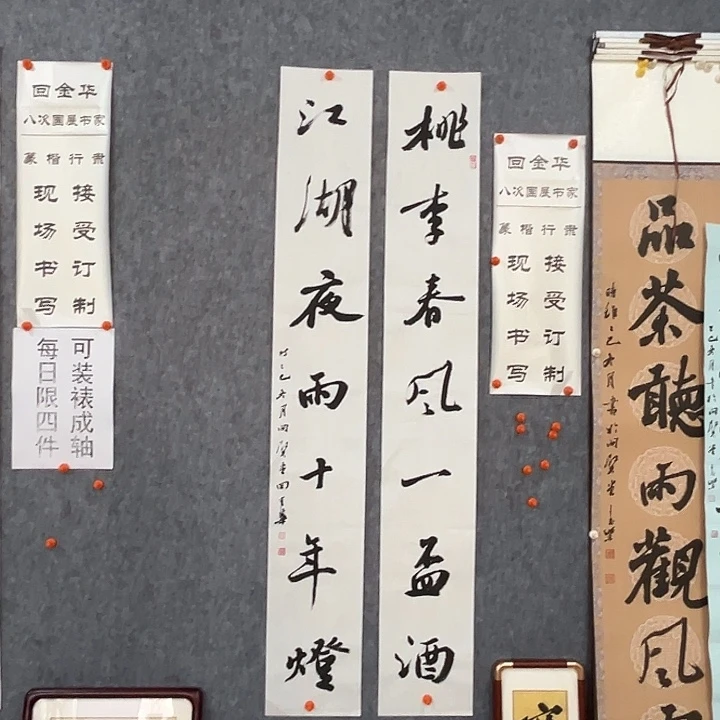 回金华
八次国展书家
篆楷行隶
接受订制
现场书写
可装裱成轴
每日限四件
桃李春风一盃酒
江湖夜雨十年燈
回金华
八次国展书家
篆楷行隶
接受订制
现场书写
品茶聽雨觀风